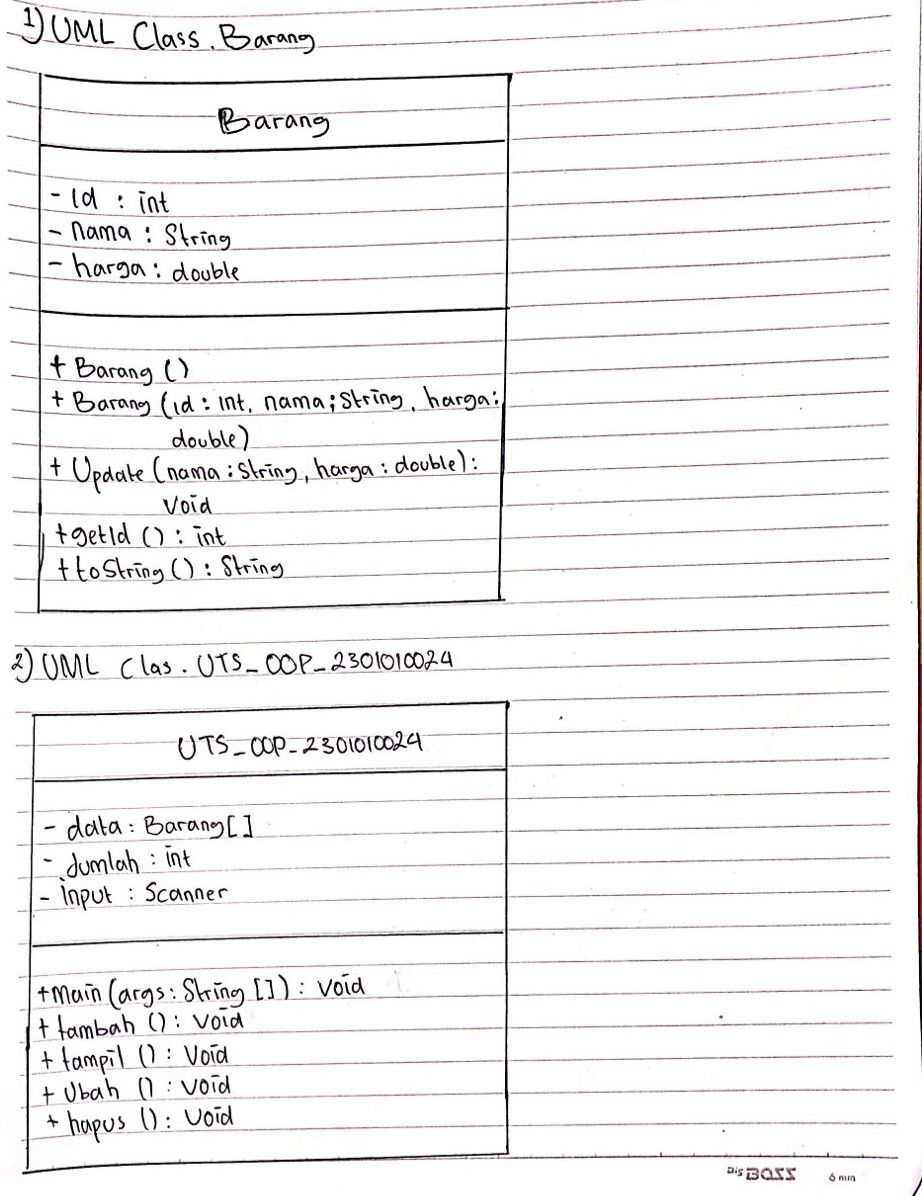 1) UML Class. Barang
Barang
- Id : int
- nama : String
- harga : double
+ Barang ()
+ Barang (id : int, nama ; String, harga :
double)
+ Update (nama : String, harga : double) :
void
+ getId () : int
+ toString () : String
2) UML Clas. UTS_OOP_2301010024
UTS_OOP_2301010024
- data : Barang[]
- Jumlah : int
- input : Scanner
+ Main (args : String []) : void
+ tambah () : void
+ tampil () : void
+ Ubah () : void
+ hapus () : void
Big BOSS 6 mm